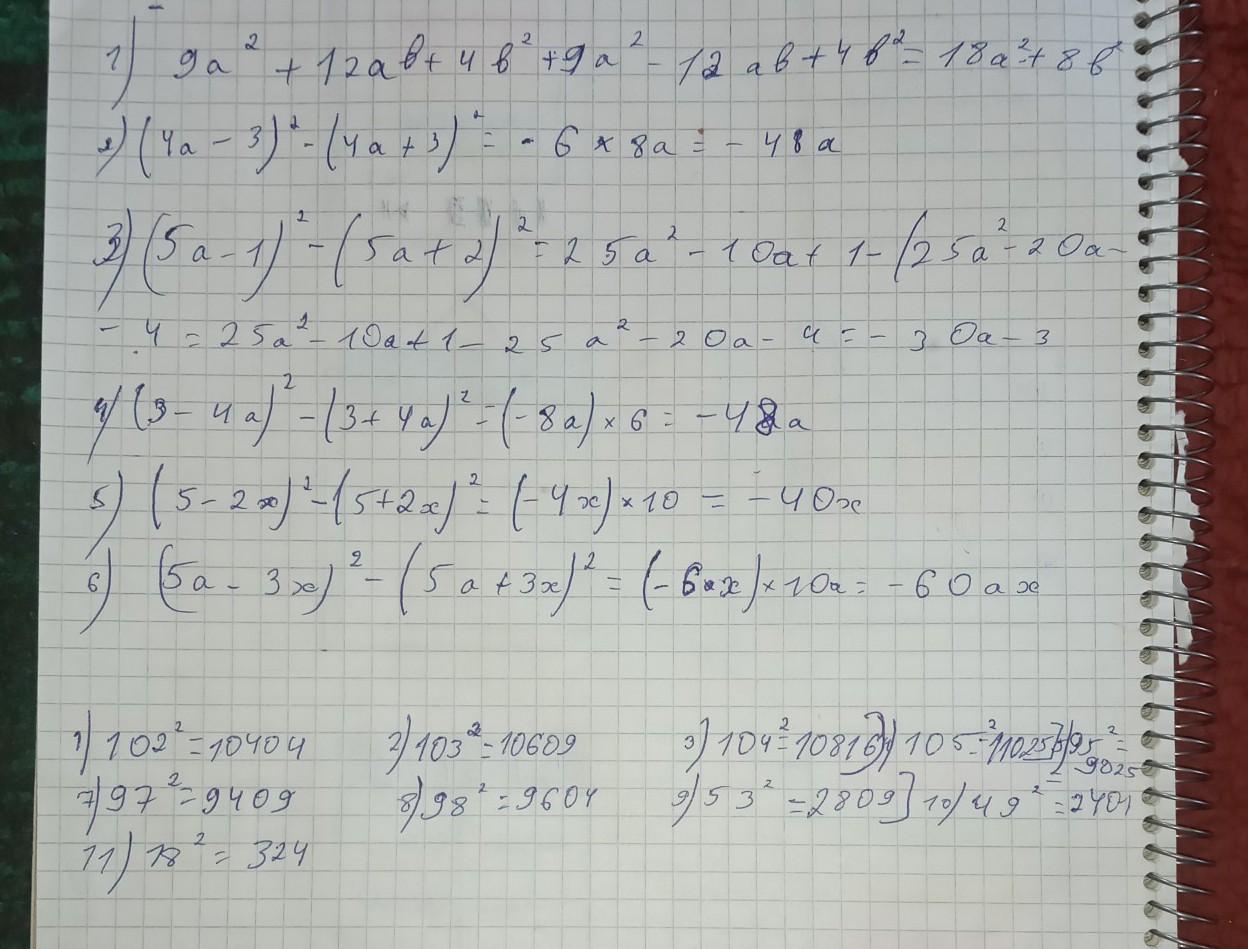 1) 9a² + 12ab + 4b² + 9a² - 12ab + 4b² = 18a² + 8b²
2) (4a - 3)² - (4a + 3)² = - 6 × 8a = - 48a
3) (5a - 1)² - (5a + 2)² = 25a² - 10a + 1 - (25a² - 20a -
- 4 = 25a² - 10a + 1 - 25a² - 20a - 4 = - 30a - 3
4) (3 - 4a)² - (3 + 4a)² = (-8a) × 6 = -48a
5) (5 - 2x)² - (5 + 2x)² = (-4x) × 10 = -40x
6) (5a - 3x)² - (5a + 3x)² = (-6x) × 10a = -60ax
1) 102² = 10404 2) 103² = 10609 3) 104² = 10816 4) 105² = 11025 5) 95² = 9025
7) 97² = 9409 8) 98² = 9604 9) 53² = 2809 10) 49² = 2401
11) 18² = 324